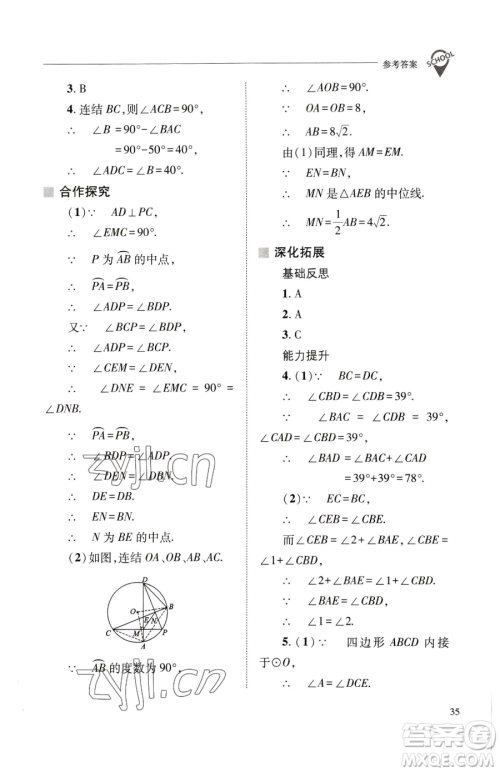 参考答案
SCHOOL
3. B
4. 连结 BC,则∠ACB=90°,
∴ ∠B=90°-∠BAC
=90°-50°=40°,
∴ ∠ADC=∠B=40°.
合作探究
(1)∵ AD⊥PC,
∴ ∠EMC=90°.
∵ P 为 A͡B 的中点,
∴ P͡A=P͡B,
∴ ∠ADP=∠BDP.
又∵ ∠ACP=∠ADP,
∴ ∠BCP=∠BDP.
∵ ∠CEM=∠DEN,
∴ ∠DNE=∠EMC=90°=
∠DNB.
∵ P͡A=P͡B,
∴ ∠BDP=∠ADP,
∴ ∠DEN=∠DBN.
∴ DE=DB.
∴ EN=BN.
∴ N 为 BE 的中点.
(2)如图,连结 OA、OB、AB、AC,
D
O
B
E
N
C
M
P
A
∵ A͡B 的度数为 90°,
∴ ∠AOB=90°.
∵ OA=OB=8,
∴ AB=8√2.
由(1)同理,得 AM=EM.
∵ EN=BN,
∴ MN 是△AEB 的中位线.
∴ MN=1/2AB=4√2.
深化拓展
基础反思
1. A
2. A
3. C
能力提升
4. (1)∵ BC=DC,
∴ ∠CBD=∠CDB=39°.
∵ ∠BAC=∠CDB=39°,
∠CAD=∠CBD=39°,
∴ ∠BAD=∠BAC+∠CAD
=39°+39°=78°.
(2)∵ EC=BC,
∴ ∠CEB=∠CBE.
而∠CEB=∠2+∠BAE,∠CBE=
∠1+∠CBD,
∴ ∠2+∠BAE=∠1+∠CBD.
∵ ∠BAE=∠CBD,
∴ ∠1=∠2.
5. (1)∵ 四边形 ABCD 内接
于⊙O,
∴ ∠A=∠DCE.
35
zyjl.cn
zyjl.cn
答案圈
MXQE.COM